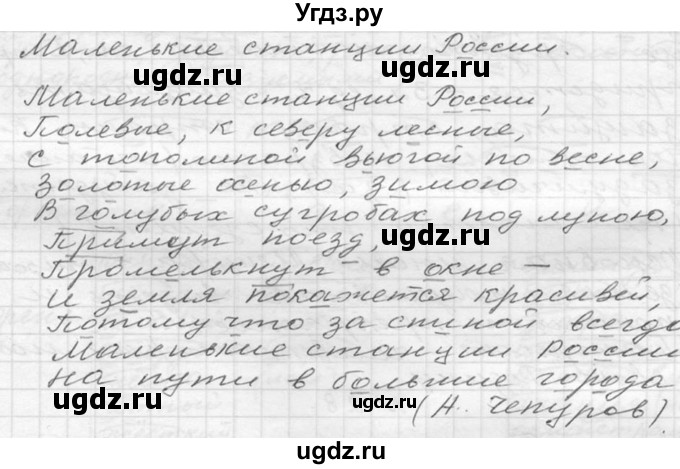 Угдз.ру
Маленькие станции России.
ugdz.ru ugdz.ru
Маленькие станции России,
Полевые, к северу лесные,
с тополиной вьюгой по весне,
ugdz.ru
Золотые осенью, зимою
В голубых сугробах под луною,
ugdz.ru ugdz.ru
Примут поезд,
Промелькнут в окне –
И земля покажется красивей,
ugdz.ru
Потому что за спиной всегда
Маленькие станции России
На пути в большие города
ugdz.ru ugdz.ru
(Н. Чепуров).
ugdz.ru